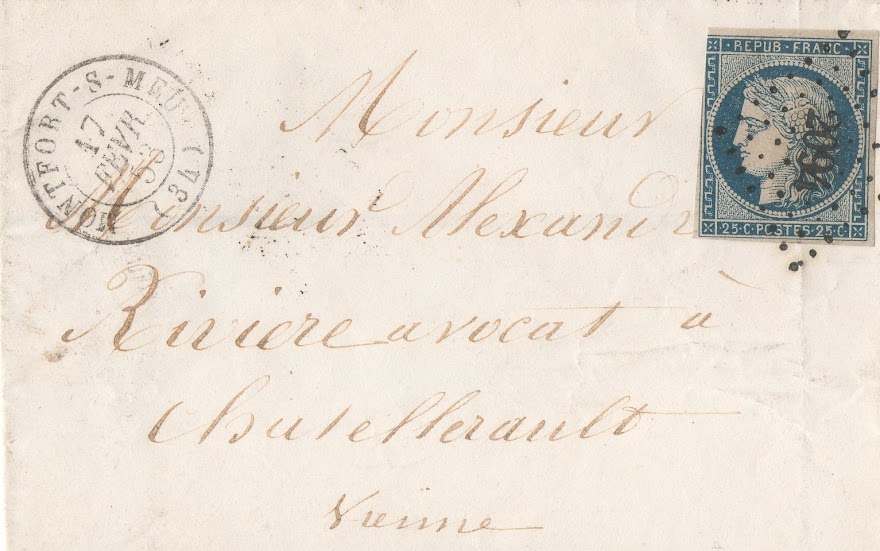 MONTFORT-S-MEU (34)
17
FEVR
53
REPUB·FRANC·
25·C·POSTES·25·C
Monsieur
Monsieur Alexandre
Riviere avocat à
Chatellerault
Vienne